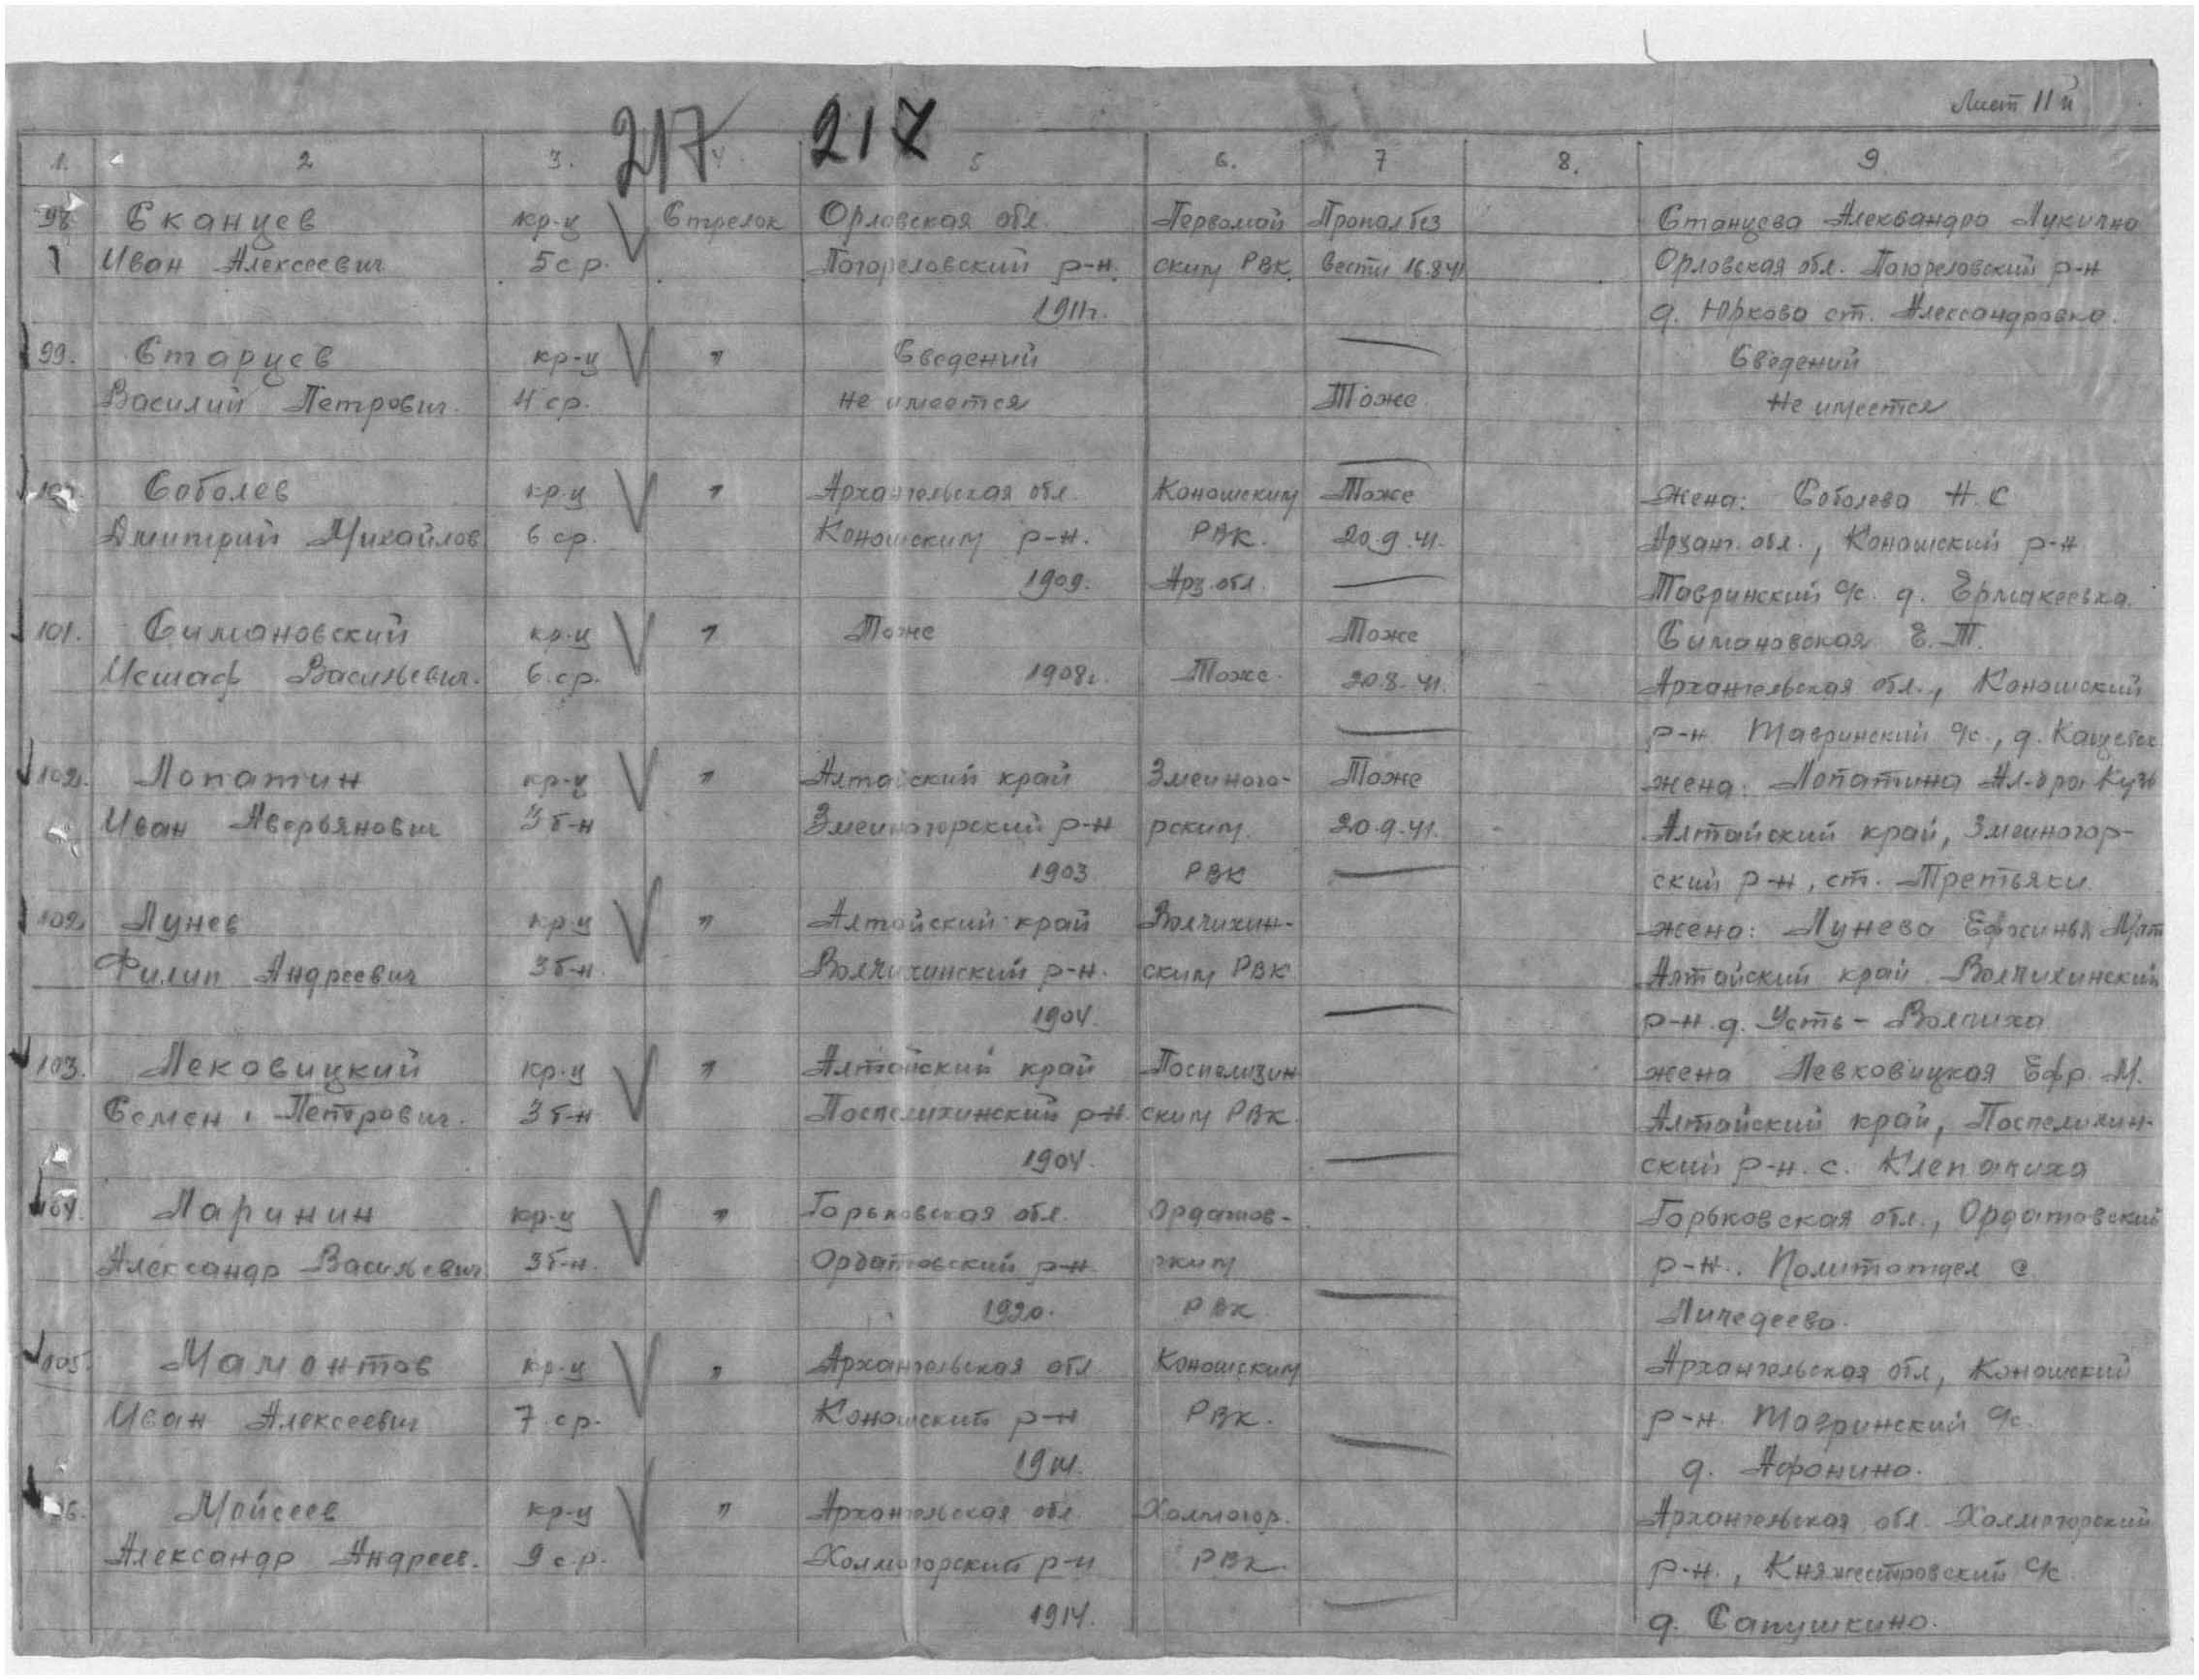 Лист 11й
217 217
1. 2 3. 4. 5 6. 7 8. 9.
98. Сканцев кр-ц Стрелок Орловская обл. Первомай Пропал без Станцева Александра Лукична
Иван Алексеевич 5 ср. Погореловский р-н. ским РВК. вести 16.8.41 Орловская обл. Погореловский р-н
1911г. д. Юрково ст. Александровка.
99. Старцев кр-ц " Сведений Сведений
Василий Петрович. 4 ср. не имеется Тоже Не имеется
100. Соболев кр-ц " Архангельская обл. Коношским Тоже Жена: Соболева Н. С
Дмитрий Михайлов 6 ср. Коношским р-н. РВК. 20.9.41. Арханг. обл., Коношский р-н
1909. Арх. обл. Тавринский с/с. д. Ермакеевка.
101. Симановский кр-ц " Тоже Тоже Симановская Е. Т.
Васильевич. 6. ср. 1908г. Тоже. 20.8.41. Архангельская обл., Коношский
р-н Тавринский с/с.,
102. Лопатин кр-ц " Алтайский край Змеиного- Тоже жена: Лопатина Ал-дра Кузь
Иван Аверьянович 3 б-н Змеиногорский р-н рским. 20.9.41. Алтайский край, Змеиногор-
1903 РВК ский р-н, ст. Третьяки
102. Лунев кр-ц " Алтайский край Волчихин- жена: Лунева Ефосинья Мат
Филип Андреевич 3 б-н. Волчихинский р-н. ским РВК Алтайский край Волчихинский
1904. р-н. д. Усть-Волчиха
103. Лековицкий кр-ц " Алтайский край Поспелихин жена Левковицкая Ефр. М.
Семен Петрович. 3 б-н Поспелихинский р-н. ским РВК. Алтайский край, Поспелихин-
1904. ский р-н. с. Клепачиха
104. Ларинин кр-ц " Горьковская обл. Ордатов- Горьковская обл., Ордатовский
Александр Васильевич 3 б-н. Ордатовский р-н ским р-н. Политотдел с.
1920. РВК. Личедеево.
105. Мамонтов кр-ц " Архангельская обл Коношским Архангельская обл, Коношский
Иван Алексеевич 7. ср. Коношский р-н РВК. р-н. Тавринский с/с.
д. Афонино.
Мойсеев кр-ц " Архангельская обл Холмогор. Архангельская обл. Холмогорский
Александр Андреев. 9 ср. Холмогорский р-н РВК. р-н., Княжестровский с/с
1914. д. Сапушкино.